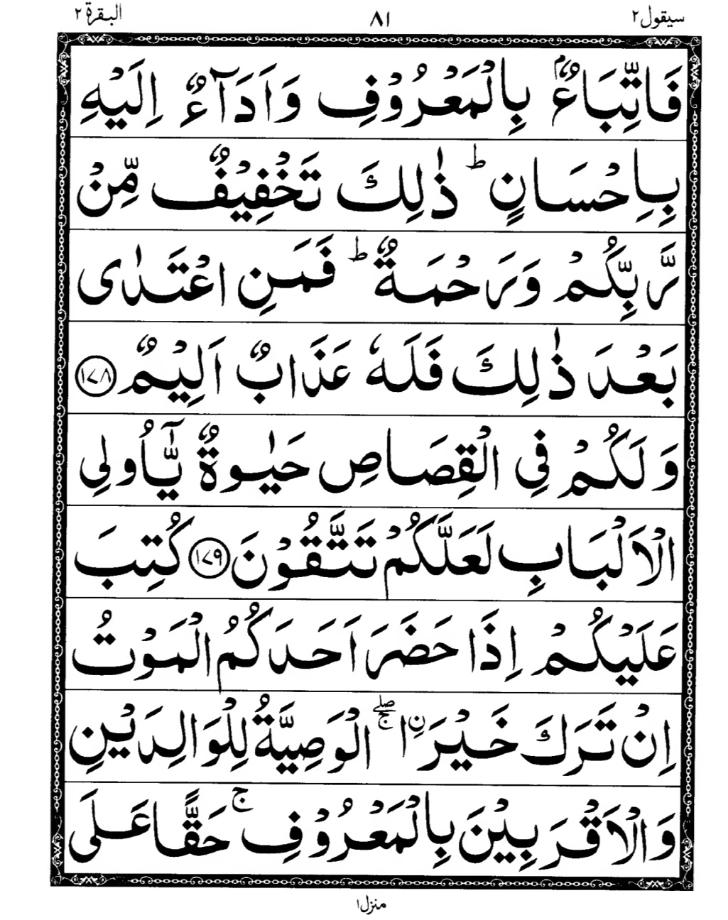 سیقول۲ ۸۱ البقرة۲
فَاتِّبَاعٌۢ بِالْمَعْرُوْفِ وَاَدَآءٌ اِلَيْهِ
بِاِحْسَانٍ ؕ ذٰلِكَ تَخْفِيْفٌ مِّنْ
رَّبِّكُمْ وَرَحْمَةٌ ؕ فَمَنِ اعْتَدٰى
بَعْدَ ذٰلِكَ فَلَهٗ عَذَابٌ اَلِيْمٌ ﴿۱۷۸﴾
وَلَكُمْ فِى الْقِصَاصِ حَيٰوةٌ يّٰۤاُولِى
الْاَلْبَابِ لَعَلَّكُمْ تَتَّقُوْنَ ﴿۱۷۹﴾ كُتِبَ
عَلَيْكُمْ اِذَا حَضَرَ اَحَدَكُمُ الْمَوْتُ
اِنْ تَرَكَ خَيْرَا ۖۚ اۨلْوَصِيَّةُ لِلْوَالِدَيْنِ
وَالْاَقْرَبِيْنَ بِالْمَعْرُوْفِ ۚ حَقًّا عَلَى
منزل۱